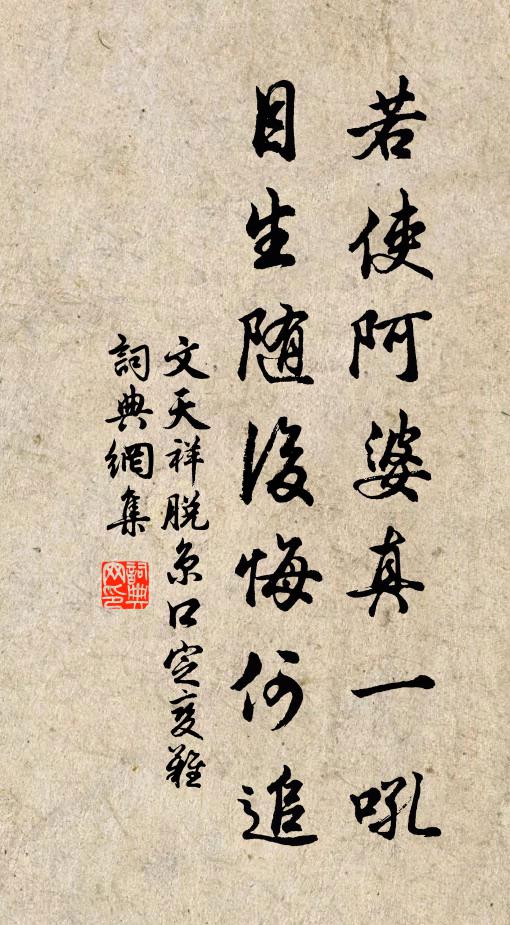 若使阿婆真一吼
目生随後悔何追
文天祥脱京口定变難
詞典網集
詞典网印